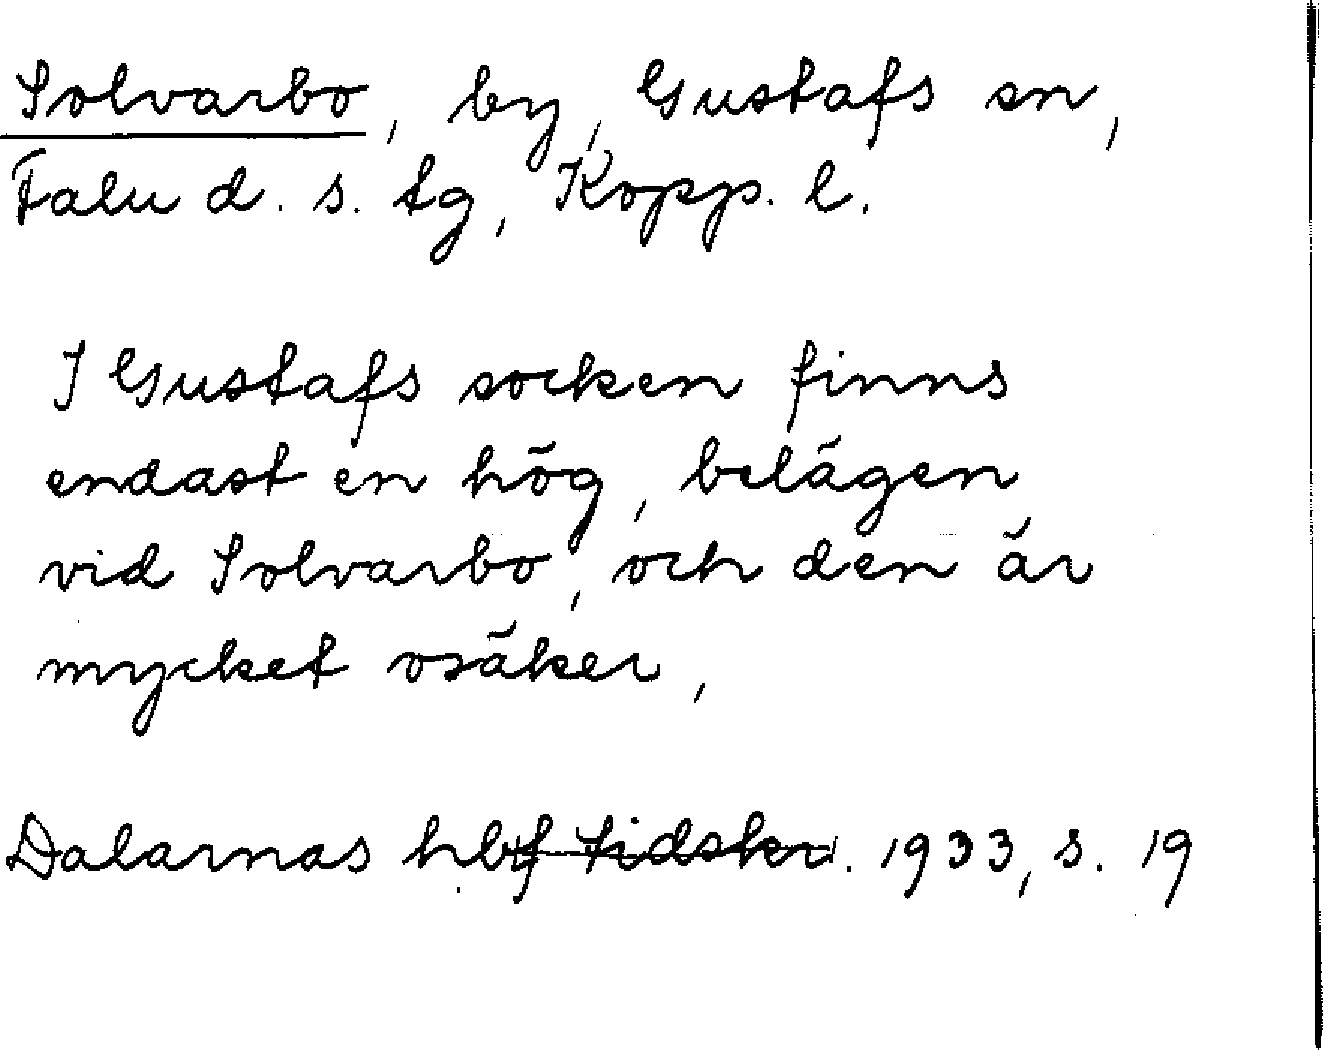 Solvarbo, by, Gustafs sn,
Falu d. s. tg, Kopp. l.
I Gustafs socken finns
endast en hög, belägen
vid Solvarbo, och den är
mycket osäker,
Dalarnas hbf tidskr. 1933, s. 19